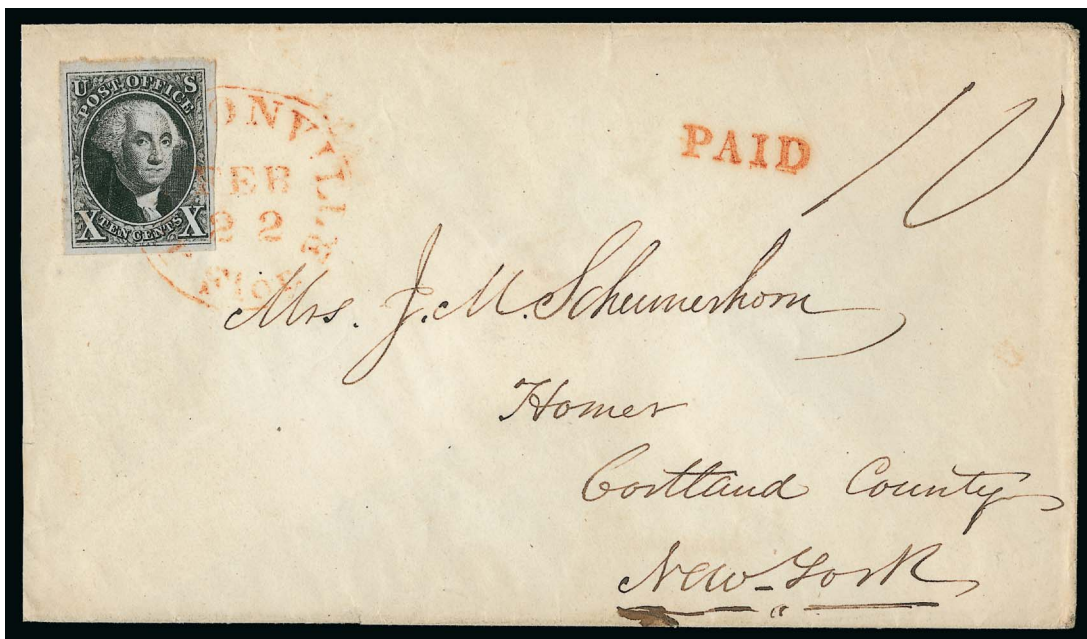 U S
POST OFFICE
X TEN CENTS X
ONVILLE
FEB
22
Flor
PAID
10
Mrs. J. M. Schermerhorn
Homer
Cortland County
New-York